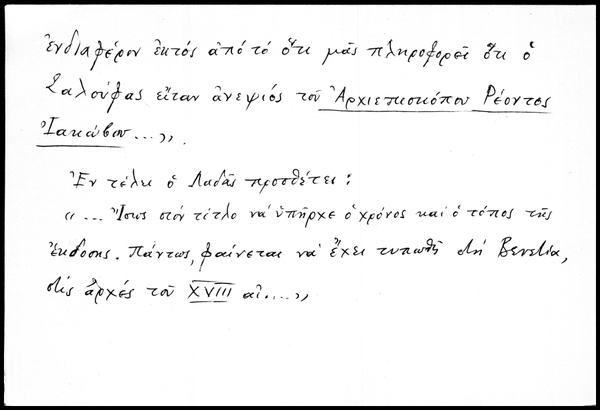 ἐνδιαφέρον ἐκτός ἀπό τό ὅτι μᾶς πληροφορεῖ ὅτι ὁ
Σαλούφας εἴταν ἀνεψιός τοῦ Ἀρχιεπισκόπου Ρέοντος
Ἰακώβου...».
Ἐν τέλει ὁ Λαδᾶς προσθέτει:
«... Ἴσως στόν τίτλο νά ὑπῆρχε ὁ χρόνος καί ὁ τόπος τῆς
ἐκδοσης. Πάντως, φαίνεται νά ἔχει τυπωθῆ στή Βενετία,
στίς ἀρχές τοῦ XVIII αἰ....»